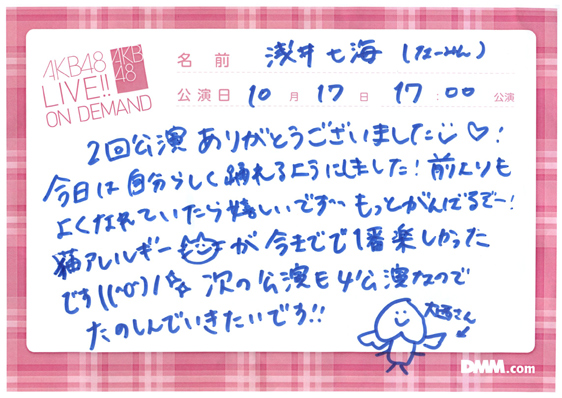 AKB48
LIVE!!
ON DEMAND
AKB
48
名前 浅井七海 (なーみん)
公演日 10月17日 17:00 公演
2回公演ありがとうございました♡!
今日は自分らしく踊れるようにしました!前よりも
よくなれていたら嬉しいですっ もっとがんばるぞー!
猫アレルギーが今までで1番楽しかった
です!((^o^)/☆ 次の公演も4公演なので
たのしんでいきたいです!!
大西さん
DMM.com